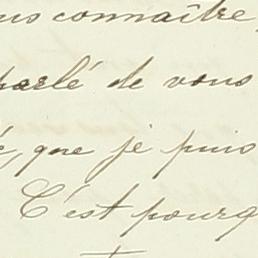 ous connaître,
parlé de vous
é, que je puis
C'est pourq